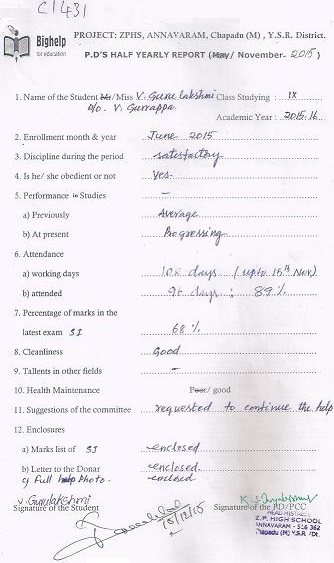 C1431
Bighelp
for education
PROJECT: ZPHS, ANNAVARAM, Chapadu (M) , Y.S.R. District.
P.D'S HALF YEARLY REPORT (May/ November- 2015)
1. Name of the Student Mr/Miss V. Guru lakshmi Class Studying : IX
D/o. V. Gurrappa Academic Year : 2015-16
2. Enrollment month & year June 2015
3. Discipline during the period satisfactory
4. Is he/ she obedient or not Yes-
5. Performance in Studies –
a) Previously Average
b) At present Progressing
6. Attendance
a) working days days (upto 15th Nov)
b) attended days : 89%
7. Percentage of marks in the
latest exam SI 68%
8. Cleanliness Good
9. Tallents in other fields –
10. Health Maintenance Poor/ good
11. Suggestions of the committee requested to continue the help
12. Enclosures
a) Marks list of SI enclosed
b) Letter to the Donar enclosed.
c) Full help Photo. enclosed
V. Gurulakshmi
Signature of the Student Signature of the PD/PCC
15/12/15
HEADMISTRESS
Z.P. HIGH SCHOOL
ANNAVARAM - 516 362
Chapadu (M) Y.S.R. Dt.